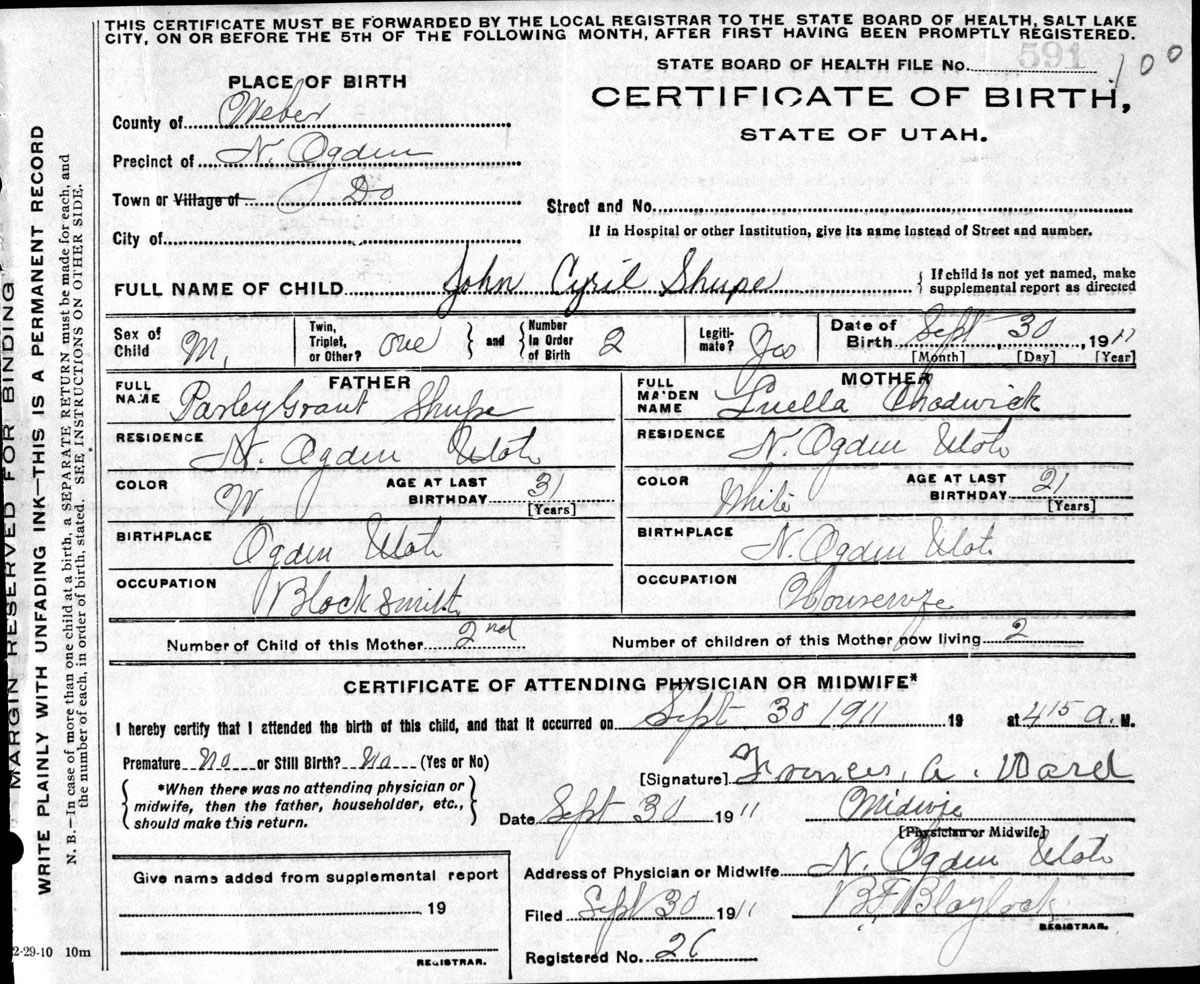 THIS CERTIFICATE MUST BE FORWARDED BY THE LOCAL REGISTRAR TO THE STATE BOARD OF HEALTH, SALT LAKE
CITY, ON OR BEFORE THE 5TH OF THE FOLLOWING MONTH, AFTER FIRST HAVING BEEN PROMPTLY REGISTERED.
STATE BOARD OF HEALTH FILE No. 591 100
PLACE OF BIRTH
CERTIFICATE OF BIRTH,
STATE OF UTAH.
County of Weber
Precinct of N. Ogden
Town or Village of Do
Street and No.
City of
If in Hospital or other Institution, give its name instead of Street and number.
FULL NAME OF CHILD John Cyril Shupe { If child is not yet named, make
supplemental report as directed
Sex of Child M. Twin, Triplet, or Other? One } and { Number in Order of Birth 2 Legiti-mate? Yes Date of Birth Sept 30 1911
[Month] [Day] [Year]
FATHER
FULL NAME Parley Grant Shupe
RESIDENCE N. Ogden Utah
COLOR W. AGE AT LAST BIRTHDAY 31 [Years]
BIRTHPLACE Ogden Utah
OCCUPATION Blacksmith
MOTHER
FULL MAIDEN NAME Luella Chadwick
RESIDENCE N. Ogden Utah
COLOR White AGE AT LAST BIRTHDAY 21 [Years]
BIRTHPLACE N. Ogden Utah
OCCUPATION Housewife
Number of Child of this Mother 2nd Number of children of this Mother now living 2
CERTIFICATE OF ATTENDING PHYSICIAN OR MIDWIFE*
I hereby certify that I attended the birth of this child, and that it occurred on Sept 30 1911 19 at 415 a. M.
Premature No or Still Birth? No (Yes or No)
[Signature] Frances. A. Ward
{ *When there was no attending physician or
midwife, then the father, householder, etc.,
should make this return. }
Date Sept 30 1911 Midwife
[Physician or Midwife]
Address of Physician or Midwife N. Ogden Utah
Give name added from supplemental report
, 19
REGISTRAR.
Filed Sept 30 1911 B.F. Blaylock
REGISTRAR.
Registered No. 26
2-29-10 10m
MARGIN RESERVED FOR BINDING
WRITE PLAINLY WITH UNFADING INK—THIS IS A PERMANENT RECORD
N. B.—In case of more than one child at a birth, a SEPARATE RETURN must be made for each, and
the number of each, in order of birth, stated. SEE INSTRUCTIONS ON OTHER SIDE.